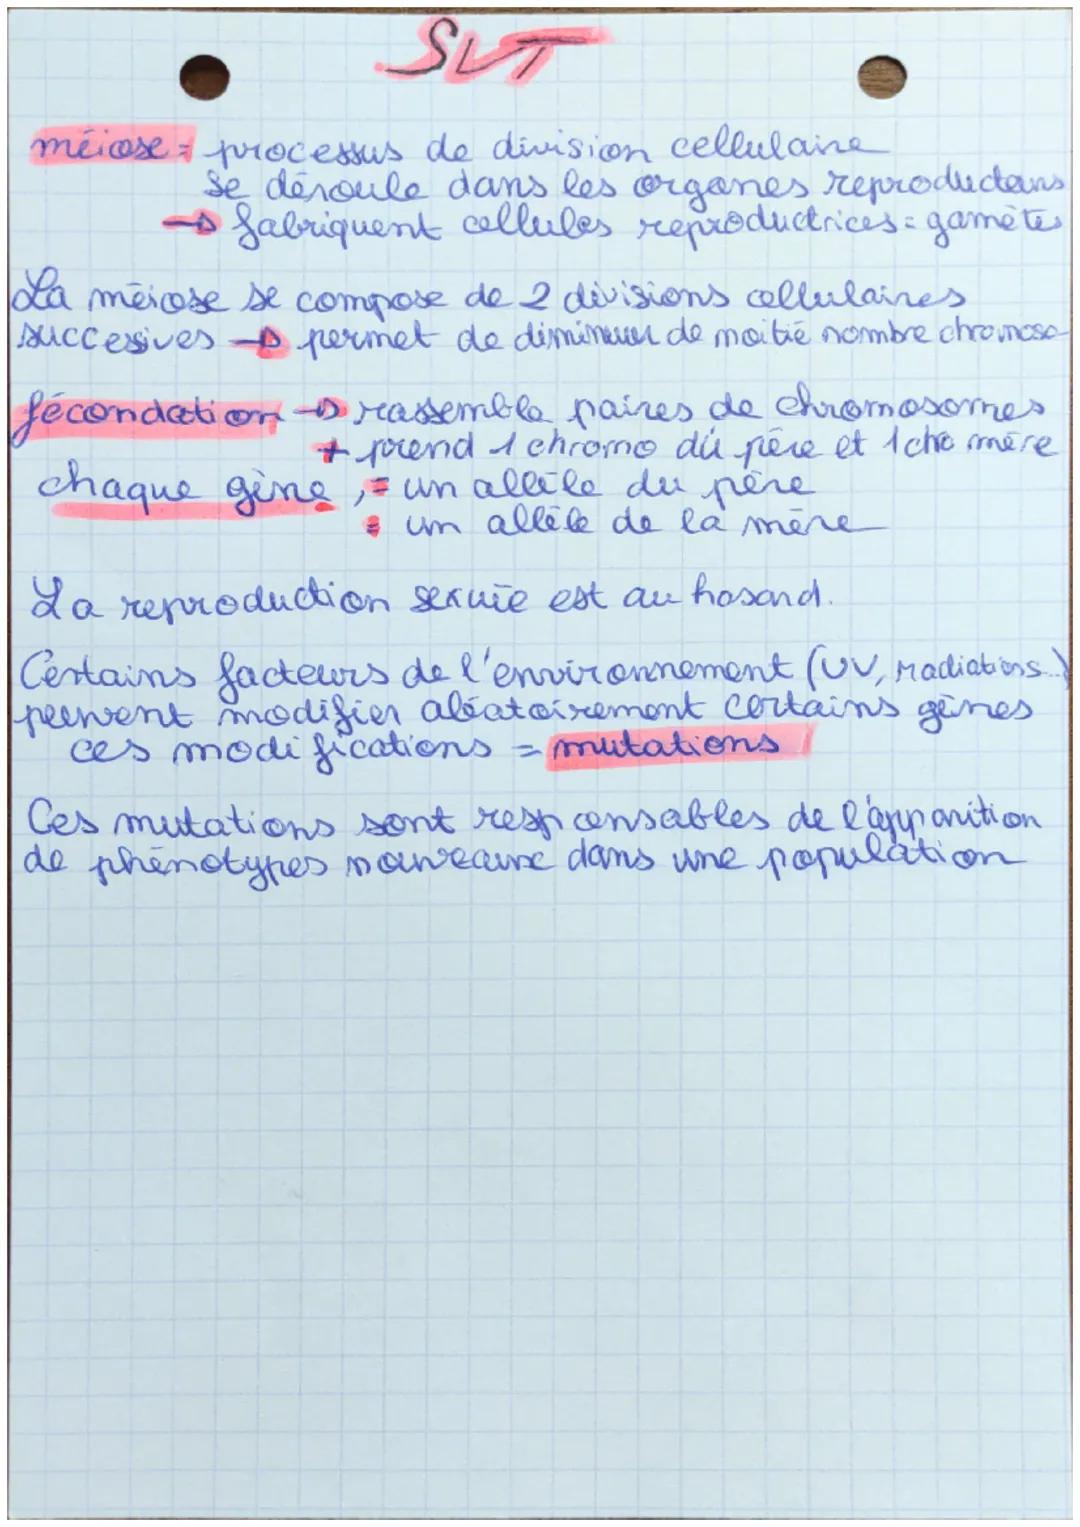 SVT
méiose = processus de division cellulaire
se déroule dans les organes reproducteurs
→ fabriquent cellules reproductrices = gamètes
La méiose se compose de 2 divisions cellulaires
successives → permet de diminuer de moitié nombre chromoso
fécondation → rassemble paires de chromosomes
+ prend 1 chromo du père et 1 chro mère
chaque gène = un allèle du père
= un allèle de la mère
La reproduction sexuée est au hasard.
Certains facteurs de l'environnement (UV, radiations...)
peuvent modifier aléatoirement certains gènes
ces modifications = mutations
Ces mutations sont responsables de l'apparition
de phénotypes nouveaux dans une population